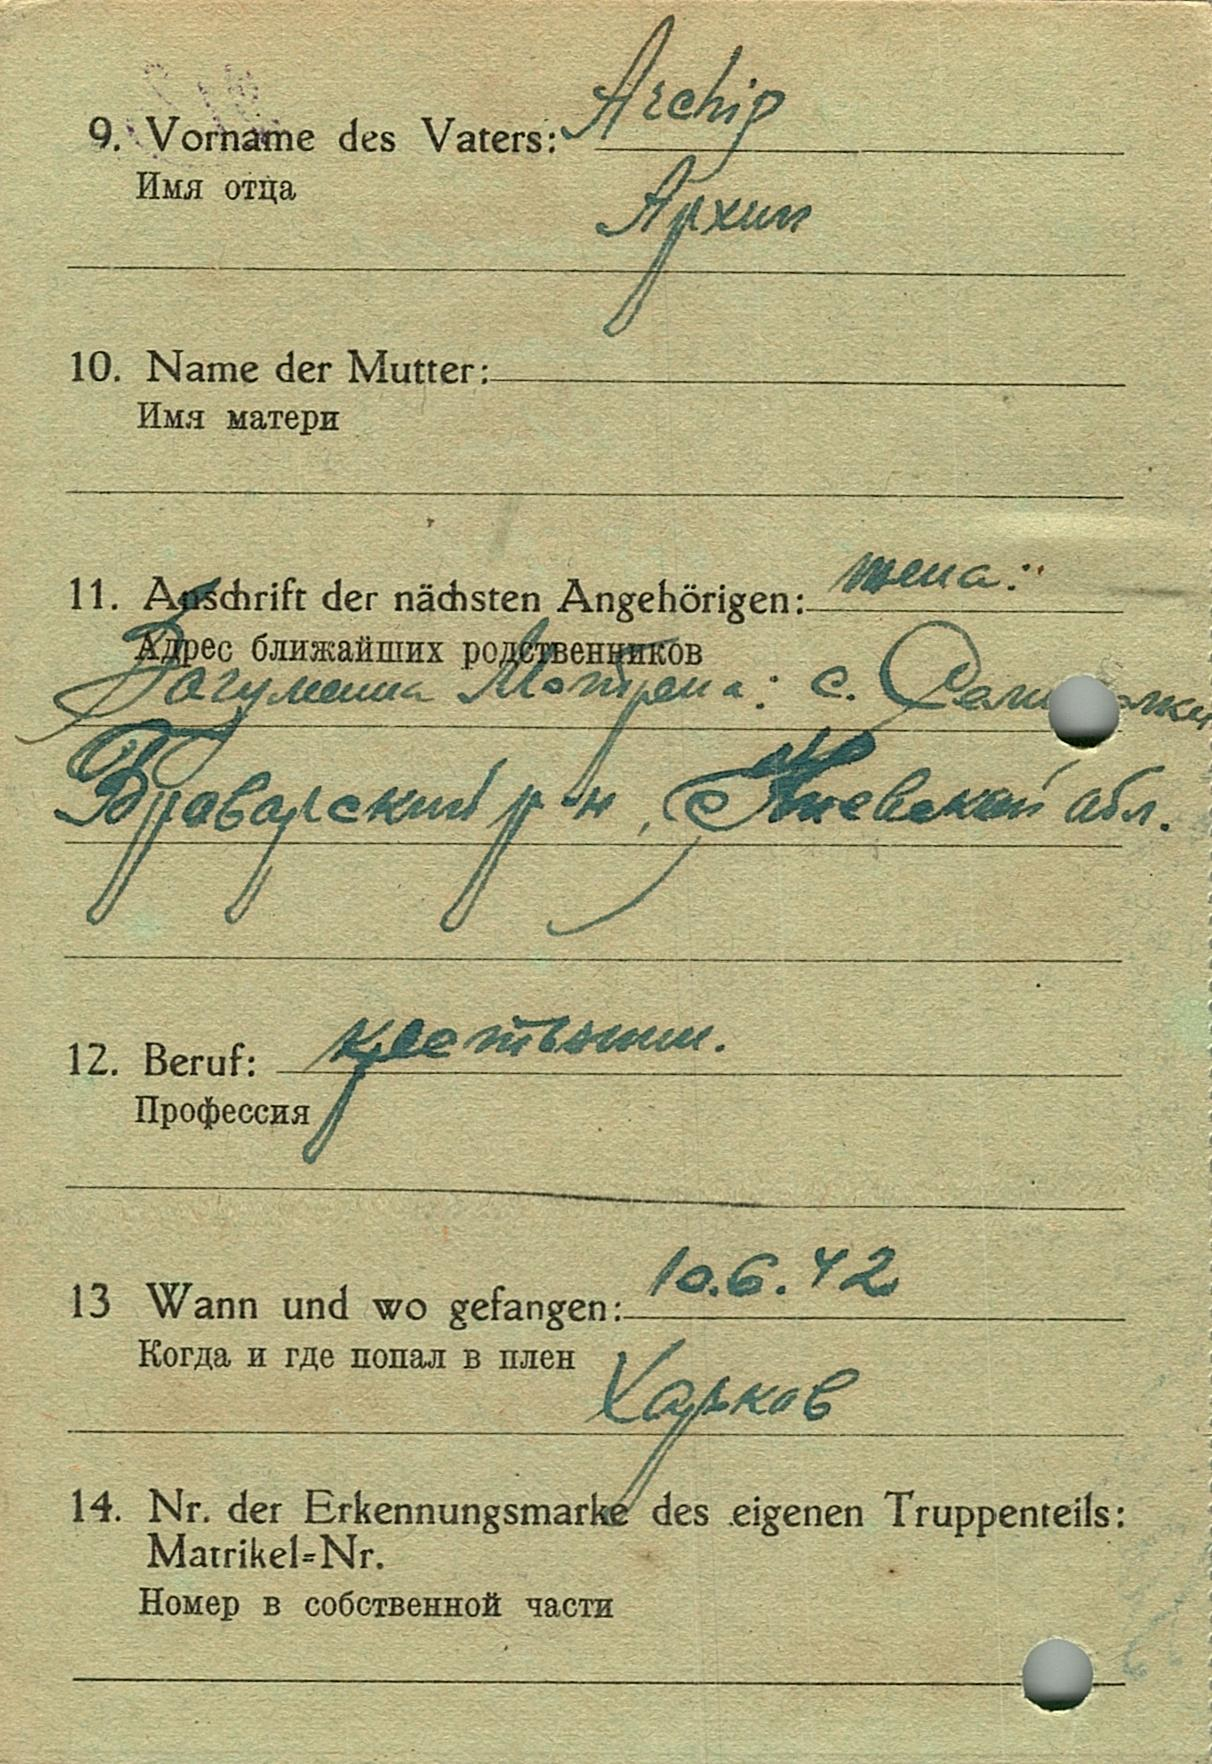 9. Vorname des Vaters: Archip
Имя отца
Архип
10. Name der Mutter:
Имя матери
11. Anschrift der nächsten Angehörigen: жена:
Адрес ближайших родственников
Мотрена: с.
Броварский р-н, Киевской обл.
12. Beruf: крестьянин.
Профессия
13 Wann und wo gefangen: 10.6.42
Когда и где попал в плен
Харьков
14. Nr. der Erkennungsmarke des eigenen Truppenteils:
Matrikel=Nr.
Номер в собственной части